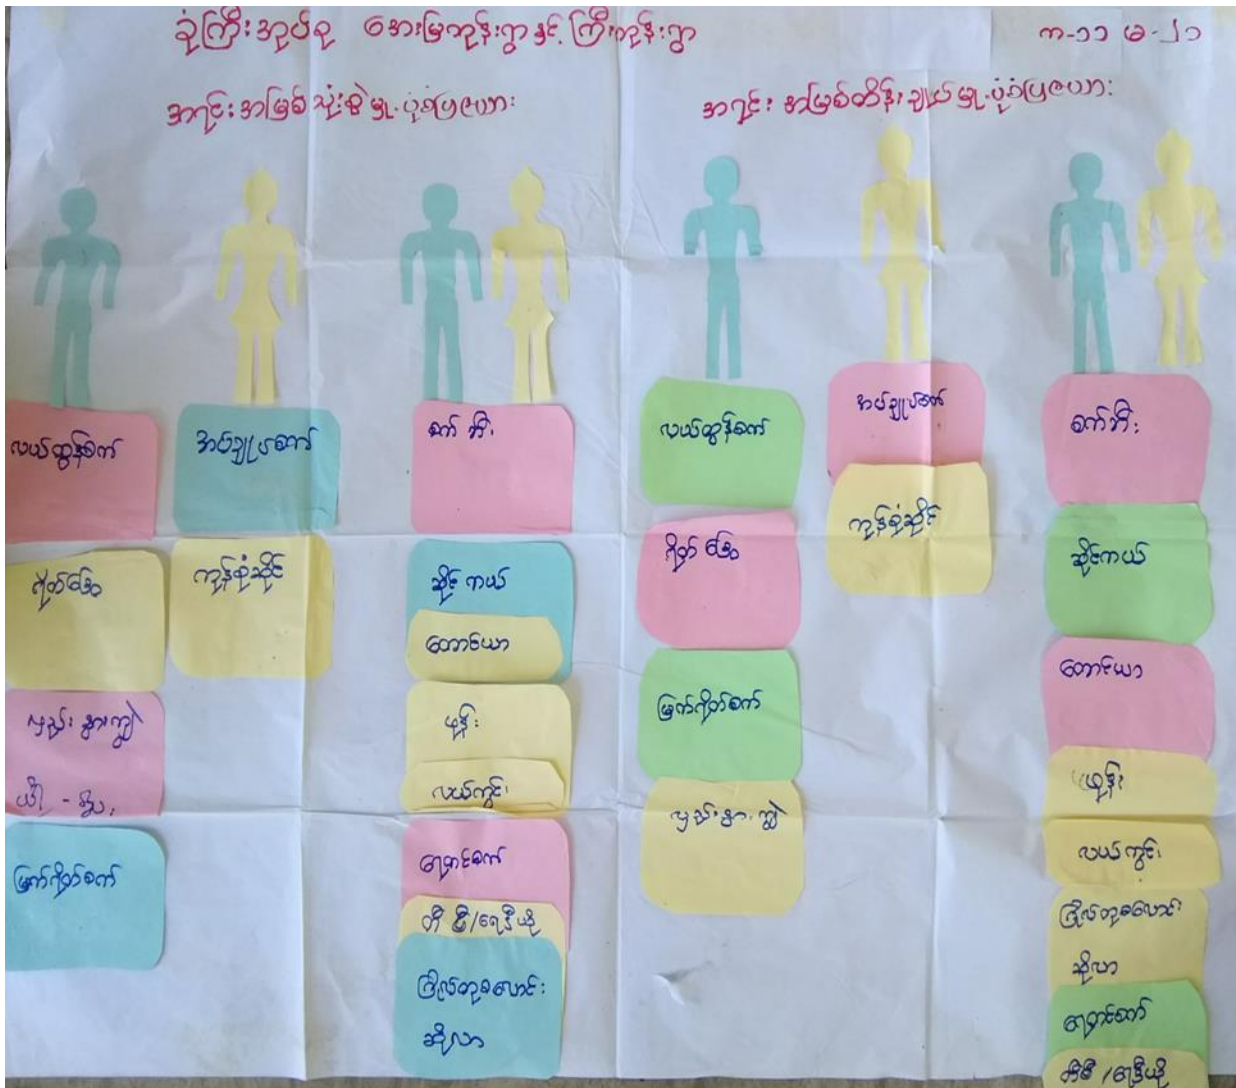 ခုံကြီးအုပ်စု အေးမြကုန်းရွာနှင့် ကြီးကုန်းရွာ
က-၁၁ မ-၂၁
အရင်းအမြစ်သုံးစွဲမှု.ပုံစံပြဇယား
အရင်း အမြစ်ထိန်းချုပ်မှု.ပုံစံပြဇယား
လယ်ထွန်စက်
ရိတ်ခြွေ
လှည်း နွားကျွဲ
မြက်ရိတ်စက်
အပ်ချုပ်စက်
ကုန်စုံဆိုင်
စက်ဘီး
ဆိုင်ကယ်
တောင်ယာ
ဖုန်း
လယ်ကွင်း
ရေတင်စက်
တီဗွီ/ရေဒီယို
ကြိတ်တုခလောင်း
ဆိုလာ
လယ်ထွန်စက်
ရိတ်ခြွေ
မြက်ရိတ်စက်
လှည်းနွားကျွဲ
အပ်ချုပ်စက်
ကုန်စုံဆိုင်
စက်ဘီး
ဆိုင်ကယ်
တောင်ယာ
ဖုန်း
လယ်ကွင်း
ကြိတ်တုခလောင်း
ဆိုလာ
ရေတင်စက်
တီဗီ/ရေဒီယို